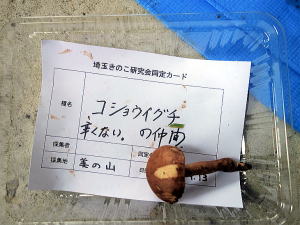 埼玉きのこ研究会同定カード
種名 コショウイグチ
辛くない。の仲間
採集者
採集地 美の山